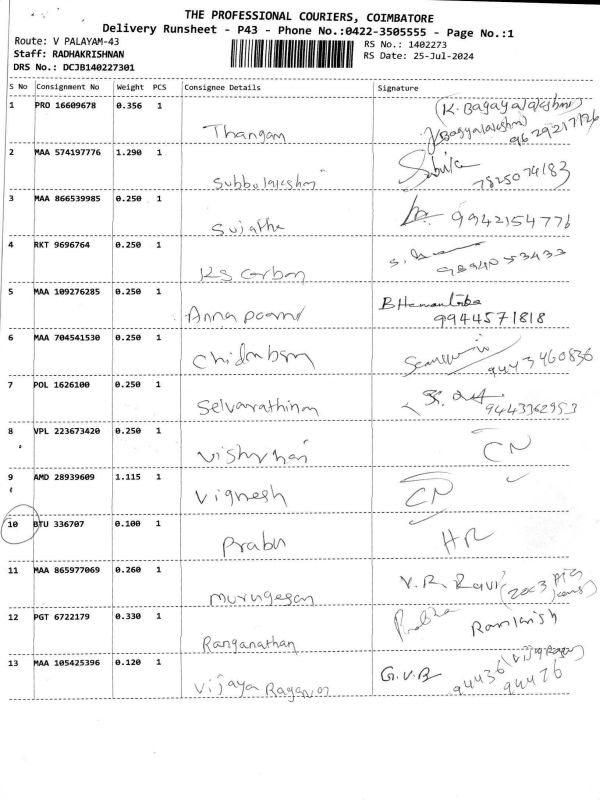 THE PROFESSIONAL COURIERS, COIMBATORE
Delivery Runsheet - P43 - Phone No.:0422-3505555 - Page No.:1
Route: V PALAYAM-43
RS No.: 1402273
Staff: RADHAKRISHNAN
RS Date: 25-Jul-2024
DRS No.: DCJB140227301
S No Consignment No Weight PCS Consignee Details Signature
1 PRO 16609678 0.356 1 Thangam (K. Bagayalakshmi)
9629217926
2 MAA 574197776 1.290 1 Subbulakshmi
7825074183
3 MAA 866539985 0.250 1 Sujatha 9942154776
4 RKT 9696764 0.250 1 KS Carbon 9894053433
5 MAA 109276285 0.250 1 Annapoorni B Hemantaba
9944571818
6 MAA 704541530 0.250 1 Chidambam
9443460836
7 POL 1626100 0.250 1 Selvarathinam
9443362953
8 VPL 223673420 0.250 1 CN
9 AMD 28939609 1.115 1 Vignesh CN
10 BTU 336707 0.100 1 Prabu HR
11 MAA 865977069 0.260 1 Murugesan V. R. Ravi
12 PGT 6722179 0.330 1 Ranganathan Prabha
13 MAA 105425396 0.120 1 Vijaya G.V.B
94436
94426